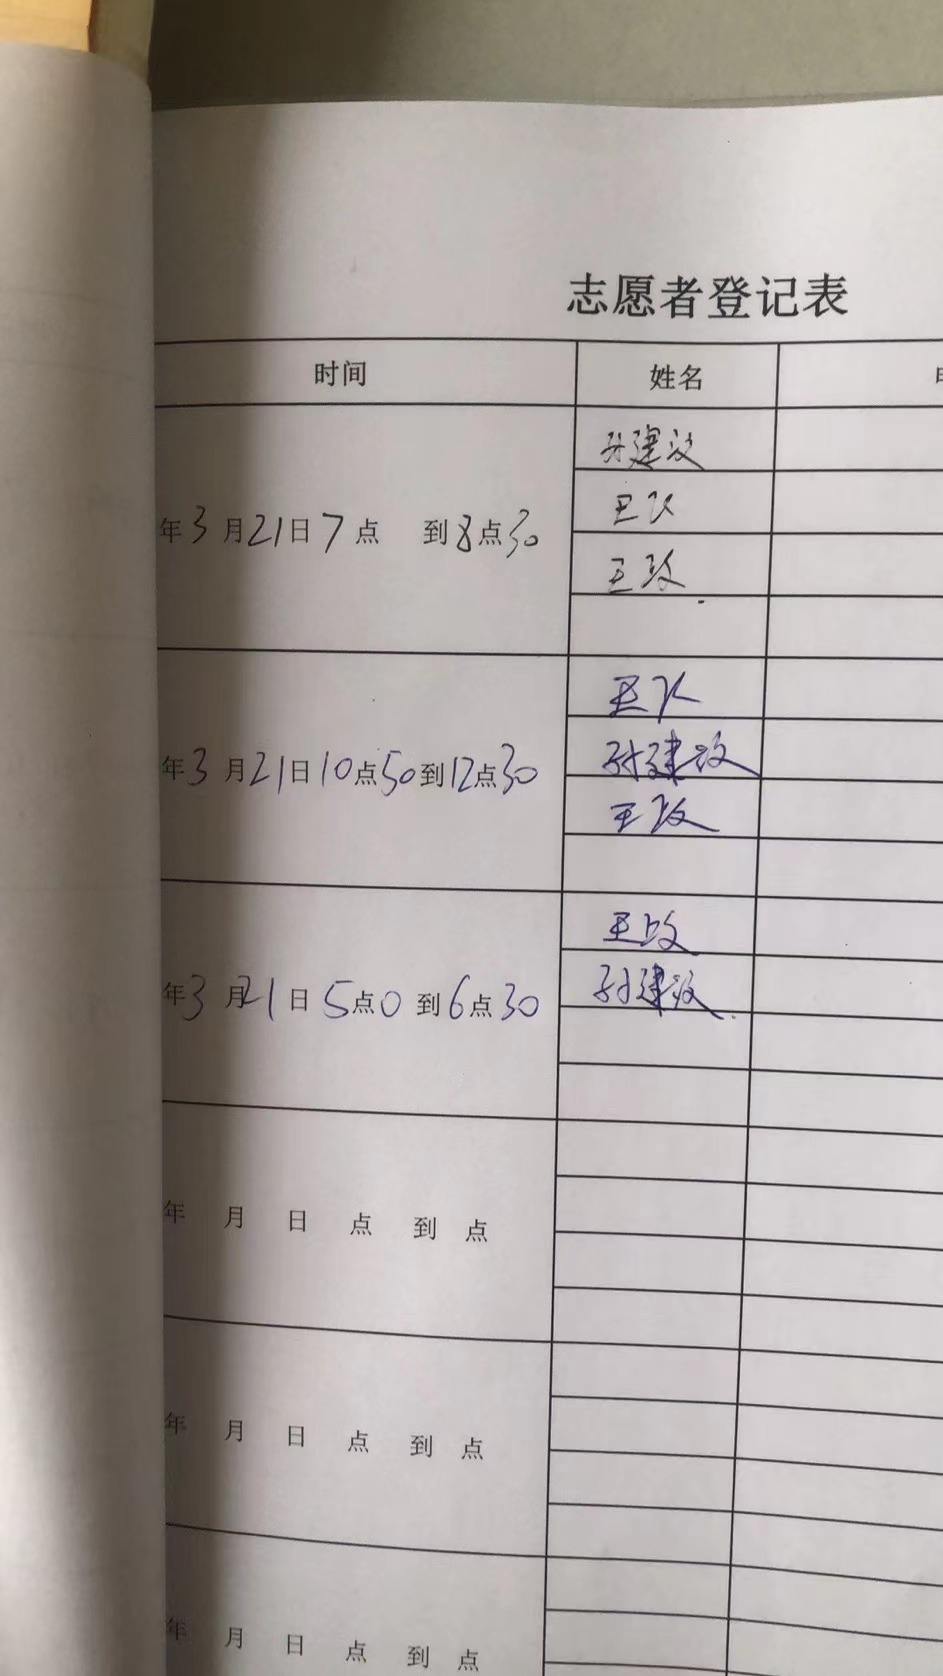 志愿者登记表
时间 姓名
年3月21日7点 到8点30
孙建设
王
王政
年3月21日10点50到12点30
王
孙建设
王政
年3月21日5点0到6点30
王政
孙建设
年 月 日 点 到 点
年 月 日 点 到 点
年 月 日 点 到 点